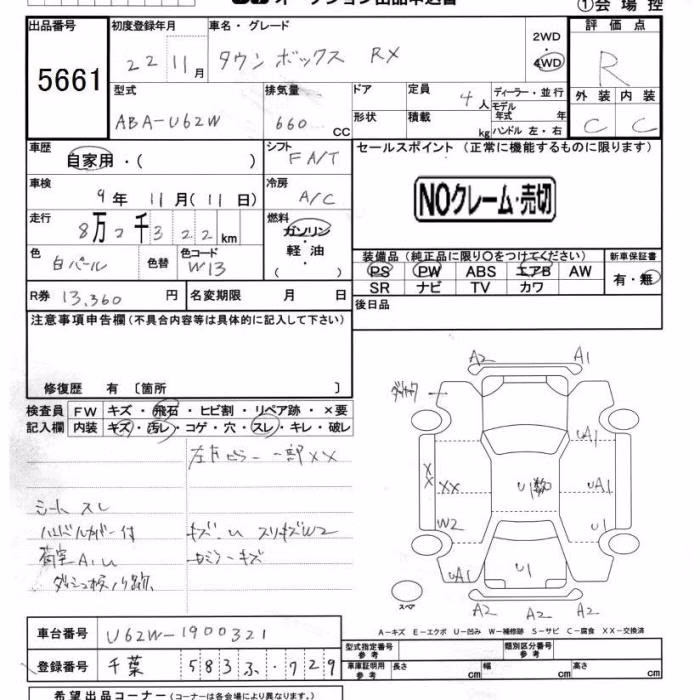 オークション出品申込書
①会場控
出品番号
5661
初度登録年月
22 11月
車名・グレード
タウンボックス RX
2WD
4WD
評価点
R
外装 内装
C C
型式
ABA-U62W
排気量
660 CC
ドア
形状
定員
4人
積載
kg
ディーラー・並行
モデル年式 年
ハンドル 左・右
車歴
自家用・( )
シフト
FA/T
セールスポイント (正常に機能するものに限ります)
NOクレーム・売切
車検
9年 11月(11日)
冷房
A/C
走行
8万2千322km
燃料
ガソリン
軽油
( )
色
白パール
色替
色コード
W13
装備品 (純正品に限り○をつけてください)
PS PW ABS エアB AW
SR ナビ TV カワ
新車保証書
有・無
R券 13,360円
名変期限 月 日
後日品
注意事項申告欄 (不具合内容等は具体的に記入して下さい)
修復歴 有 〔箇所 〕
検査員記入欄
FW キズ・飛石・ヒビ割・リペア跡・×要
内装 キズ・汚レ・コゲ・穴・スレ・キレ・破レ
左右ピラー一部XX
シートスレ
ハンドルカバー付 キズ.U スリキズW2
荷室A.U
A2 A1
UA1
XX XX
U1
UA1
W2 U1
UA1 U1
A2 A2 A2
スペア
A-キズ E-エクボ U-凹み W-補修跡 S-サビ C-腐食 XX-交換済
車台番号
U62W-1900321
登録番号
千葉 583 ふ ・729
型式指定番号 参考
類別区分番号 参考
車庫証明用 参考
長さ cm
幅 cm
高さ cm
希望出品コーナー (コーナーは各会場により異なります。)